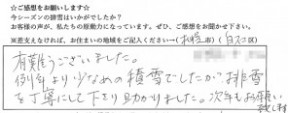 ☆ご感想をお願いします☆
今シーズンの排雪はいかがでしたか?
お客様の声が、私たちの原動力になっています。ぜひ、ご感想をお聞かせ下さい。
※差支えなければ、お住まいの地域をご記入ください→(札幌市)(白石区)
有難うございました。
例年より少なめの積雪でしたが、排雪
を丁寧にして下さり助かりました。次年もお願い
致します